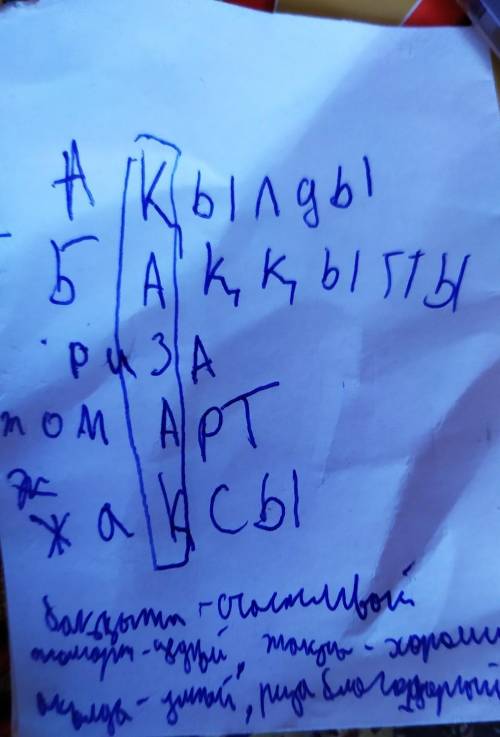 А К Ы Л Д Ы
Б А Қ Қ Ы Т Т Ы
Р И З А
Т О М А Р Т
Ж
Ж а Қ С Ы
- счастливой
- щедрый, жақсы - хороши
ақылды - умный, риза благодарный